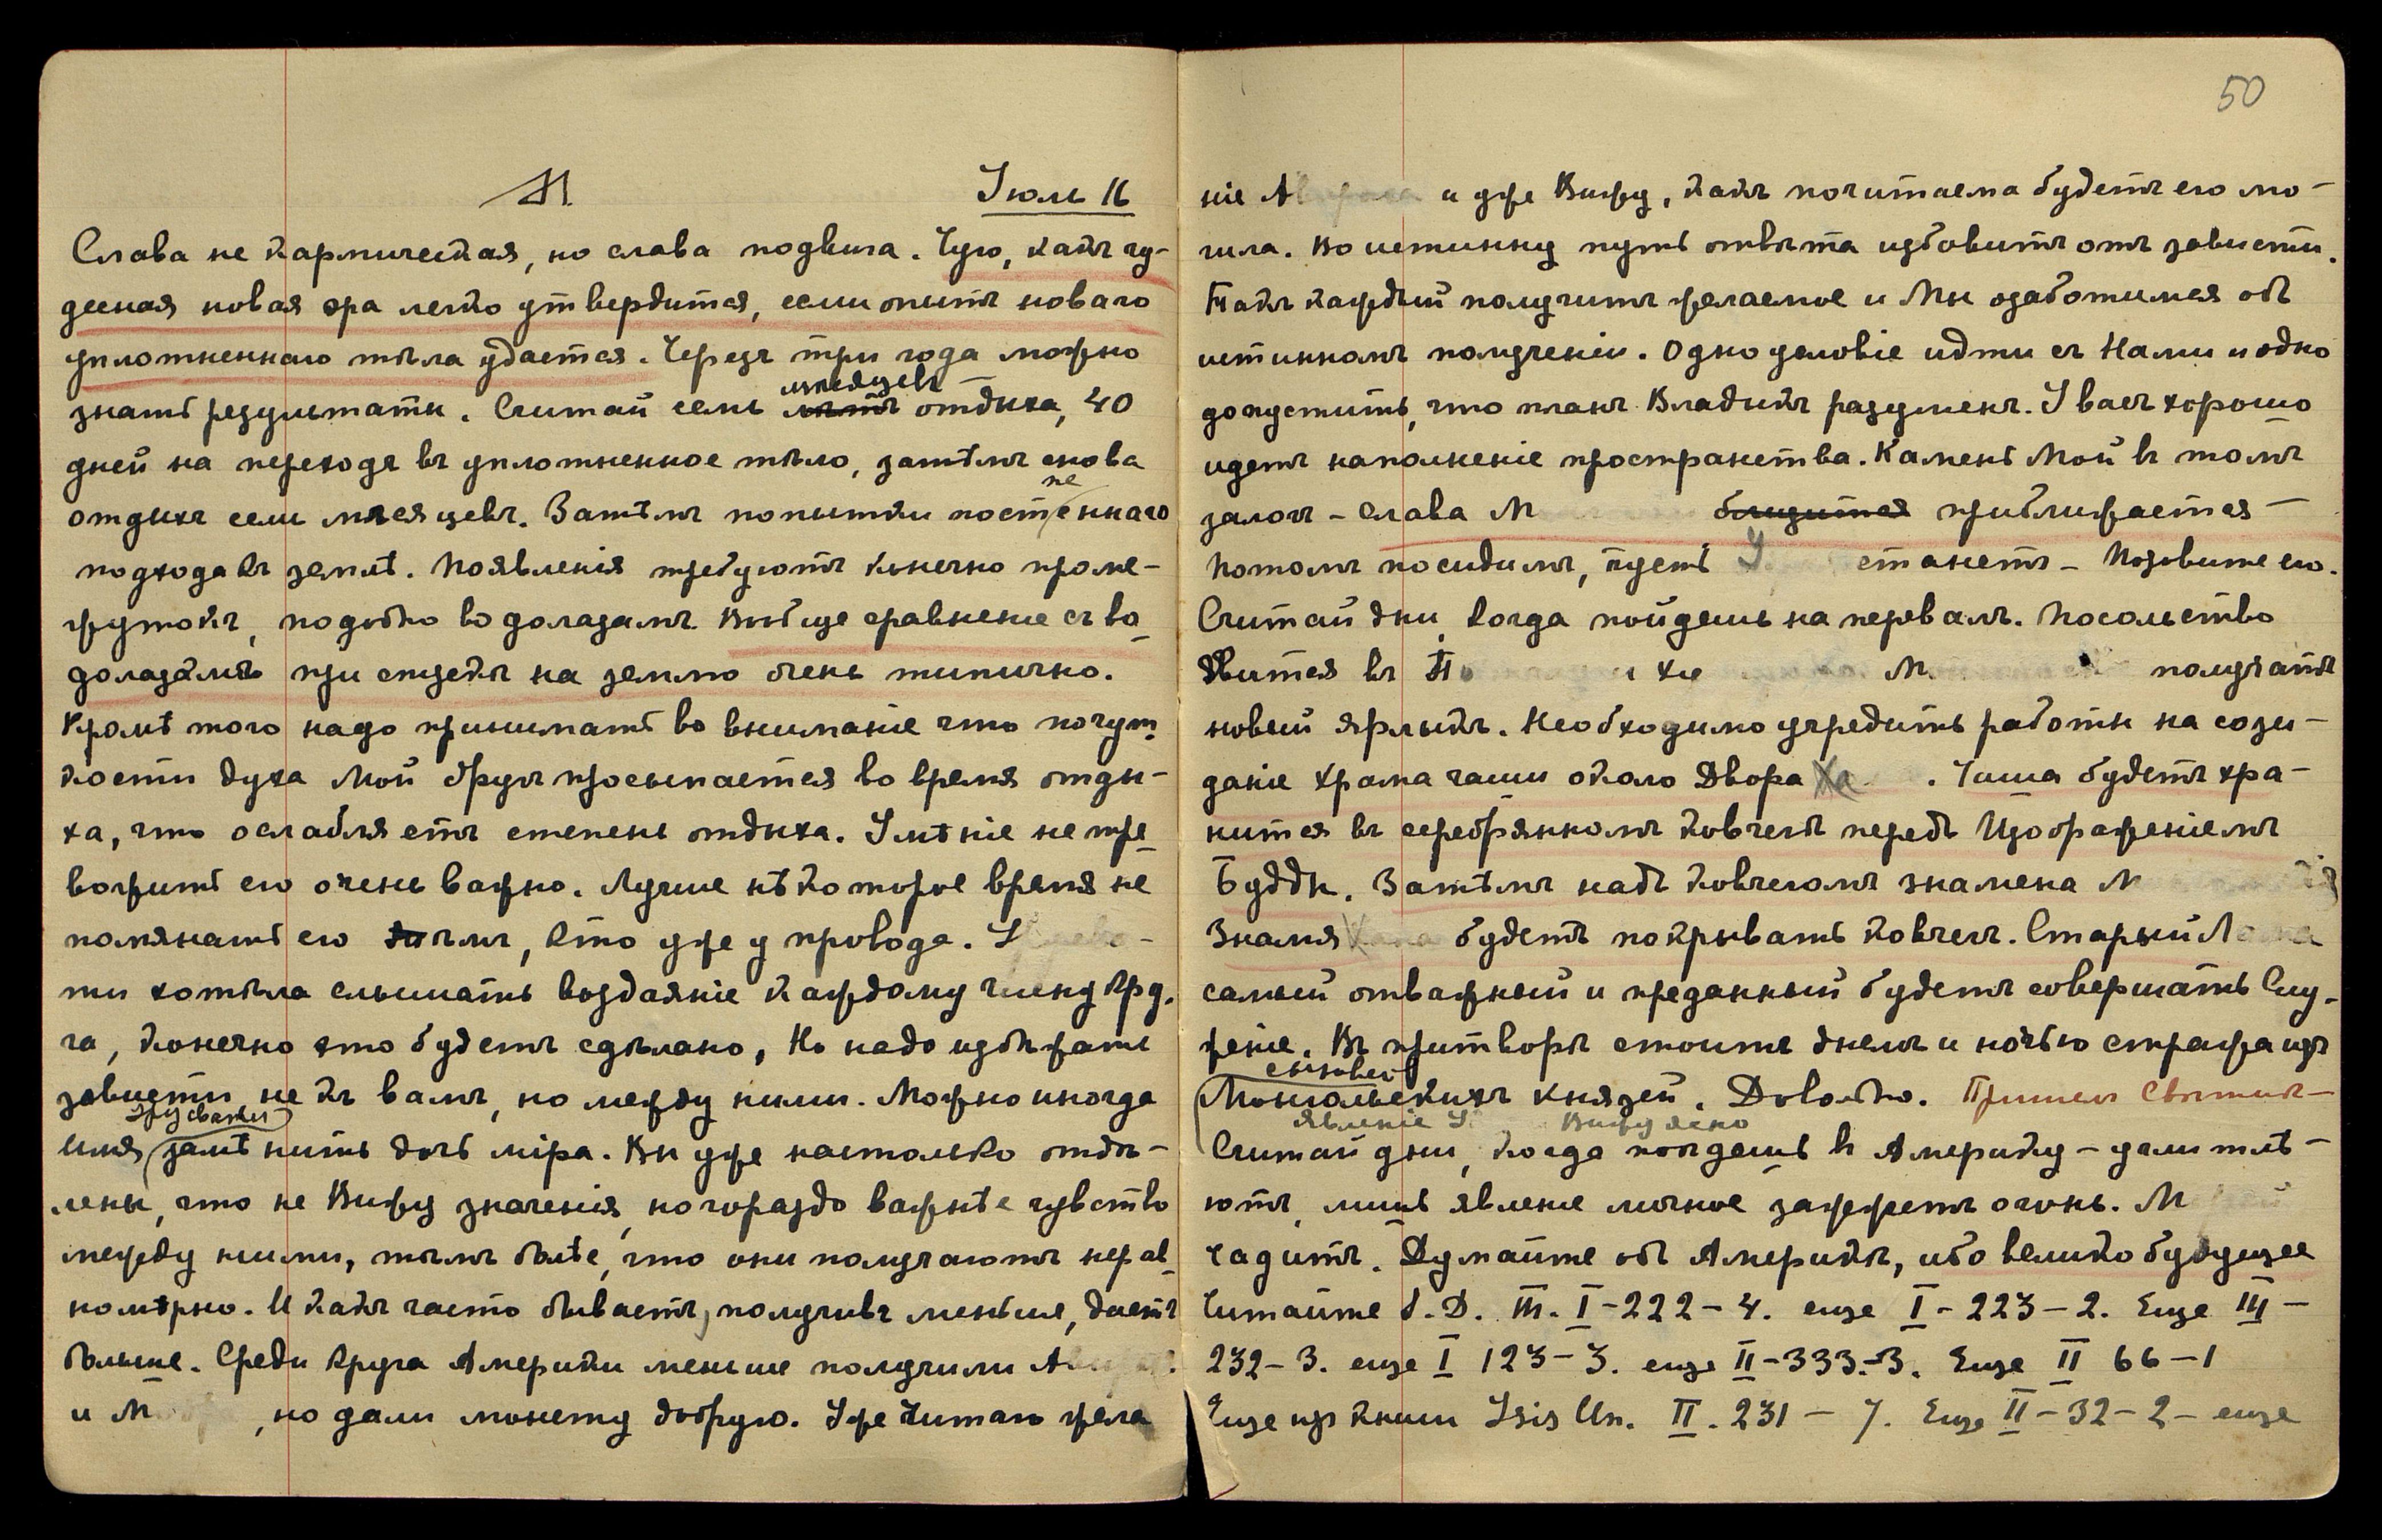 50
Іюль 16
Слава не кармическая, но слава подвига. Чую, какъ чу-
десная новая эра легко утвердится, если опытъ новаго
уплотненнаго тѣла удается. Черезъ три года можно
знать результаты. Считай семь мѣсяцевъ отдыха, 40
дней на переходъ въ уплотненное тѣло, затѣмъ снова
отдыхъ семь мѣсяцевъ. Затѣмъ попытки постепеннаго
подхода къ землѣ. Появленія требуютъ конечно проме-
жутокъ, подобно водолазамъ. Вообще сравненіе съ во-
долазамъ при спускѣ на землю очень типично.
Кромѣ того надо принимать во вниманіе что по чут-
кости духа Мой другъ просыпается во время отды-
ха, что ослабляетъ степень отдыха. Умѣніе не тре-
вожить его очень важно. Лучше нѣкоторое время не
помянать его тѣмъ, кто уже у провода. У
ти хотѣла слышать воздаяніе каждому члену кру-
га, конечно это будетъ сдѣлано, но надо избѣжать
зависти не къ вамъ, но между ними. Можно иногда
имя Урусвати замѣнить дочь міра. Вы уже настолько отдѣ-
лены, что не Вижу значенія, но гораздо важнѣе чувство
между ними, тѣмъ болѣе, что они получаютъ нерав-
номѣрно. И какъ часто бываетъ, получивъ меньше, даетъ
больше. Среди круга Америки меньше получили А
и М , но дали монету добрую. Уже Читаю жела
ніе А и уже Вижу, какъ почитаема будетъ его мо-
гила. Во истинну путь отвѣта избавитъ отъ зависти.
Такъ каждый получитъ желаемое и Мы озаботимся объ
истинномъ полученіи. Одно условіе идти съ Нами и одно
допустить, что планъ Владыкъ разуменъ. У васъ хорошо
идетъ наполненіе пространства. Камень Мой въ томъ
залогъ – слава М близится приближается –
Потомъ посидимъ, пусть У станетъ – Позовите его.
Считай дни, когда пойдешь на перевалъ. Посольство
Явится въ М получатъ
новый ярлыкъ. Необходимо учредить работы на сози-
даніе Храма чаши около Двора . Чаша будетъ хра-
нится въ серебрянномъ ковчегѣ передъ Изображеніемъ
Будды. Затѣмъ надъ ковчегомъ знамена М
Знамя будетъ покрывать ковчегъ. Старый
самый отважный и преданный будетъ совершать Слу-
женіе. Въ притворѣ стоитъ днемъ и ночью стража изъ
сыновей
Монгольскихъ князей. Довольно.
Явленіе У Вижу ясно
Считай дни, когда поѣдешь въ Америку – угли тлѣ-
ютъ, лишь явленіе личное зажжетъ огонь. М
чадитъ. Думайте объ Америкѣ, ибо велико будущее
Читайте Т. Д. Т. I – 222 – 4. еще I – 223 – 2. Еще III –
232 – 3. еще I 123 – 3. еще II – 333 – 3. Еще II 66 – 1
Еще изъ книги Isis Un. II. 231 – 7. Еще II – 32 – 2 – еще